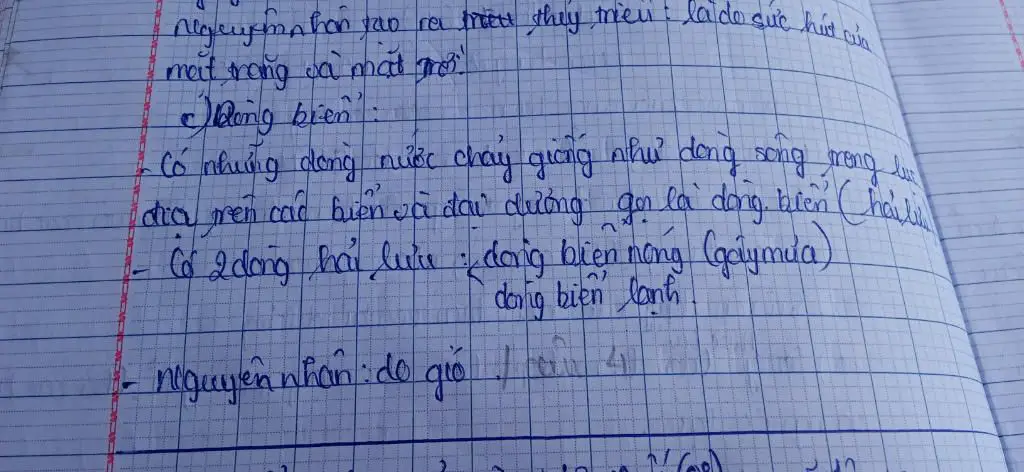 nguyên nhân tạo ra thủy triều: là do sức hút của
mặt trăng và mặt trời.
c) Dòng biển:
- Có những dòng nước chảy giống như dòng sông trong lục
địa trên các biển và đại dương gọi là dòng biển (hải lưu
- Có 2 dòng hải lưu: dòng biển nóng (gây mưa)
dòng biển lạnh
- Nguyên nhân: do gió